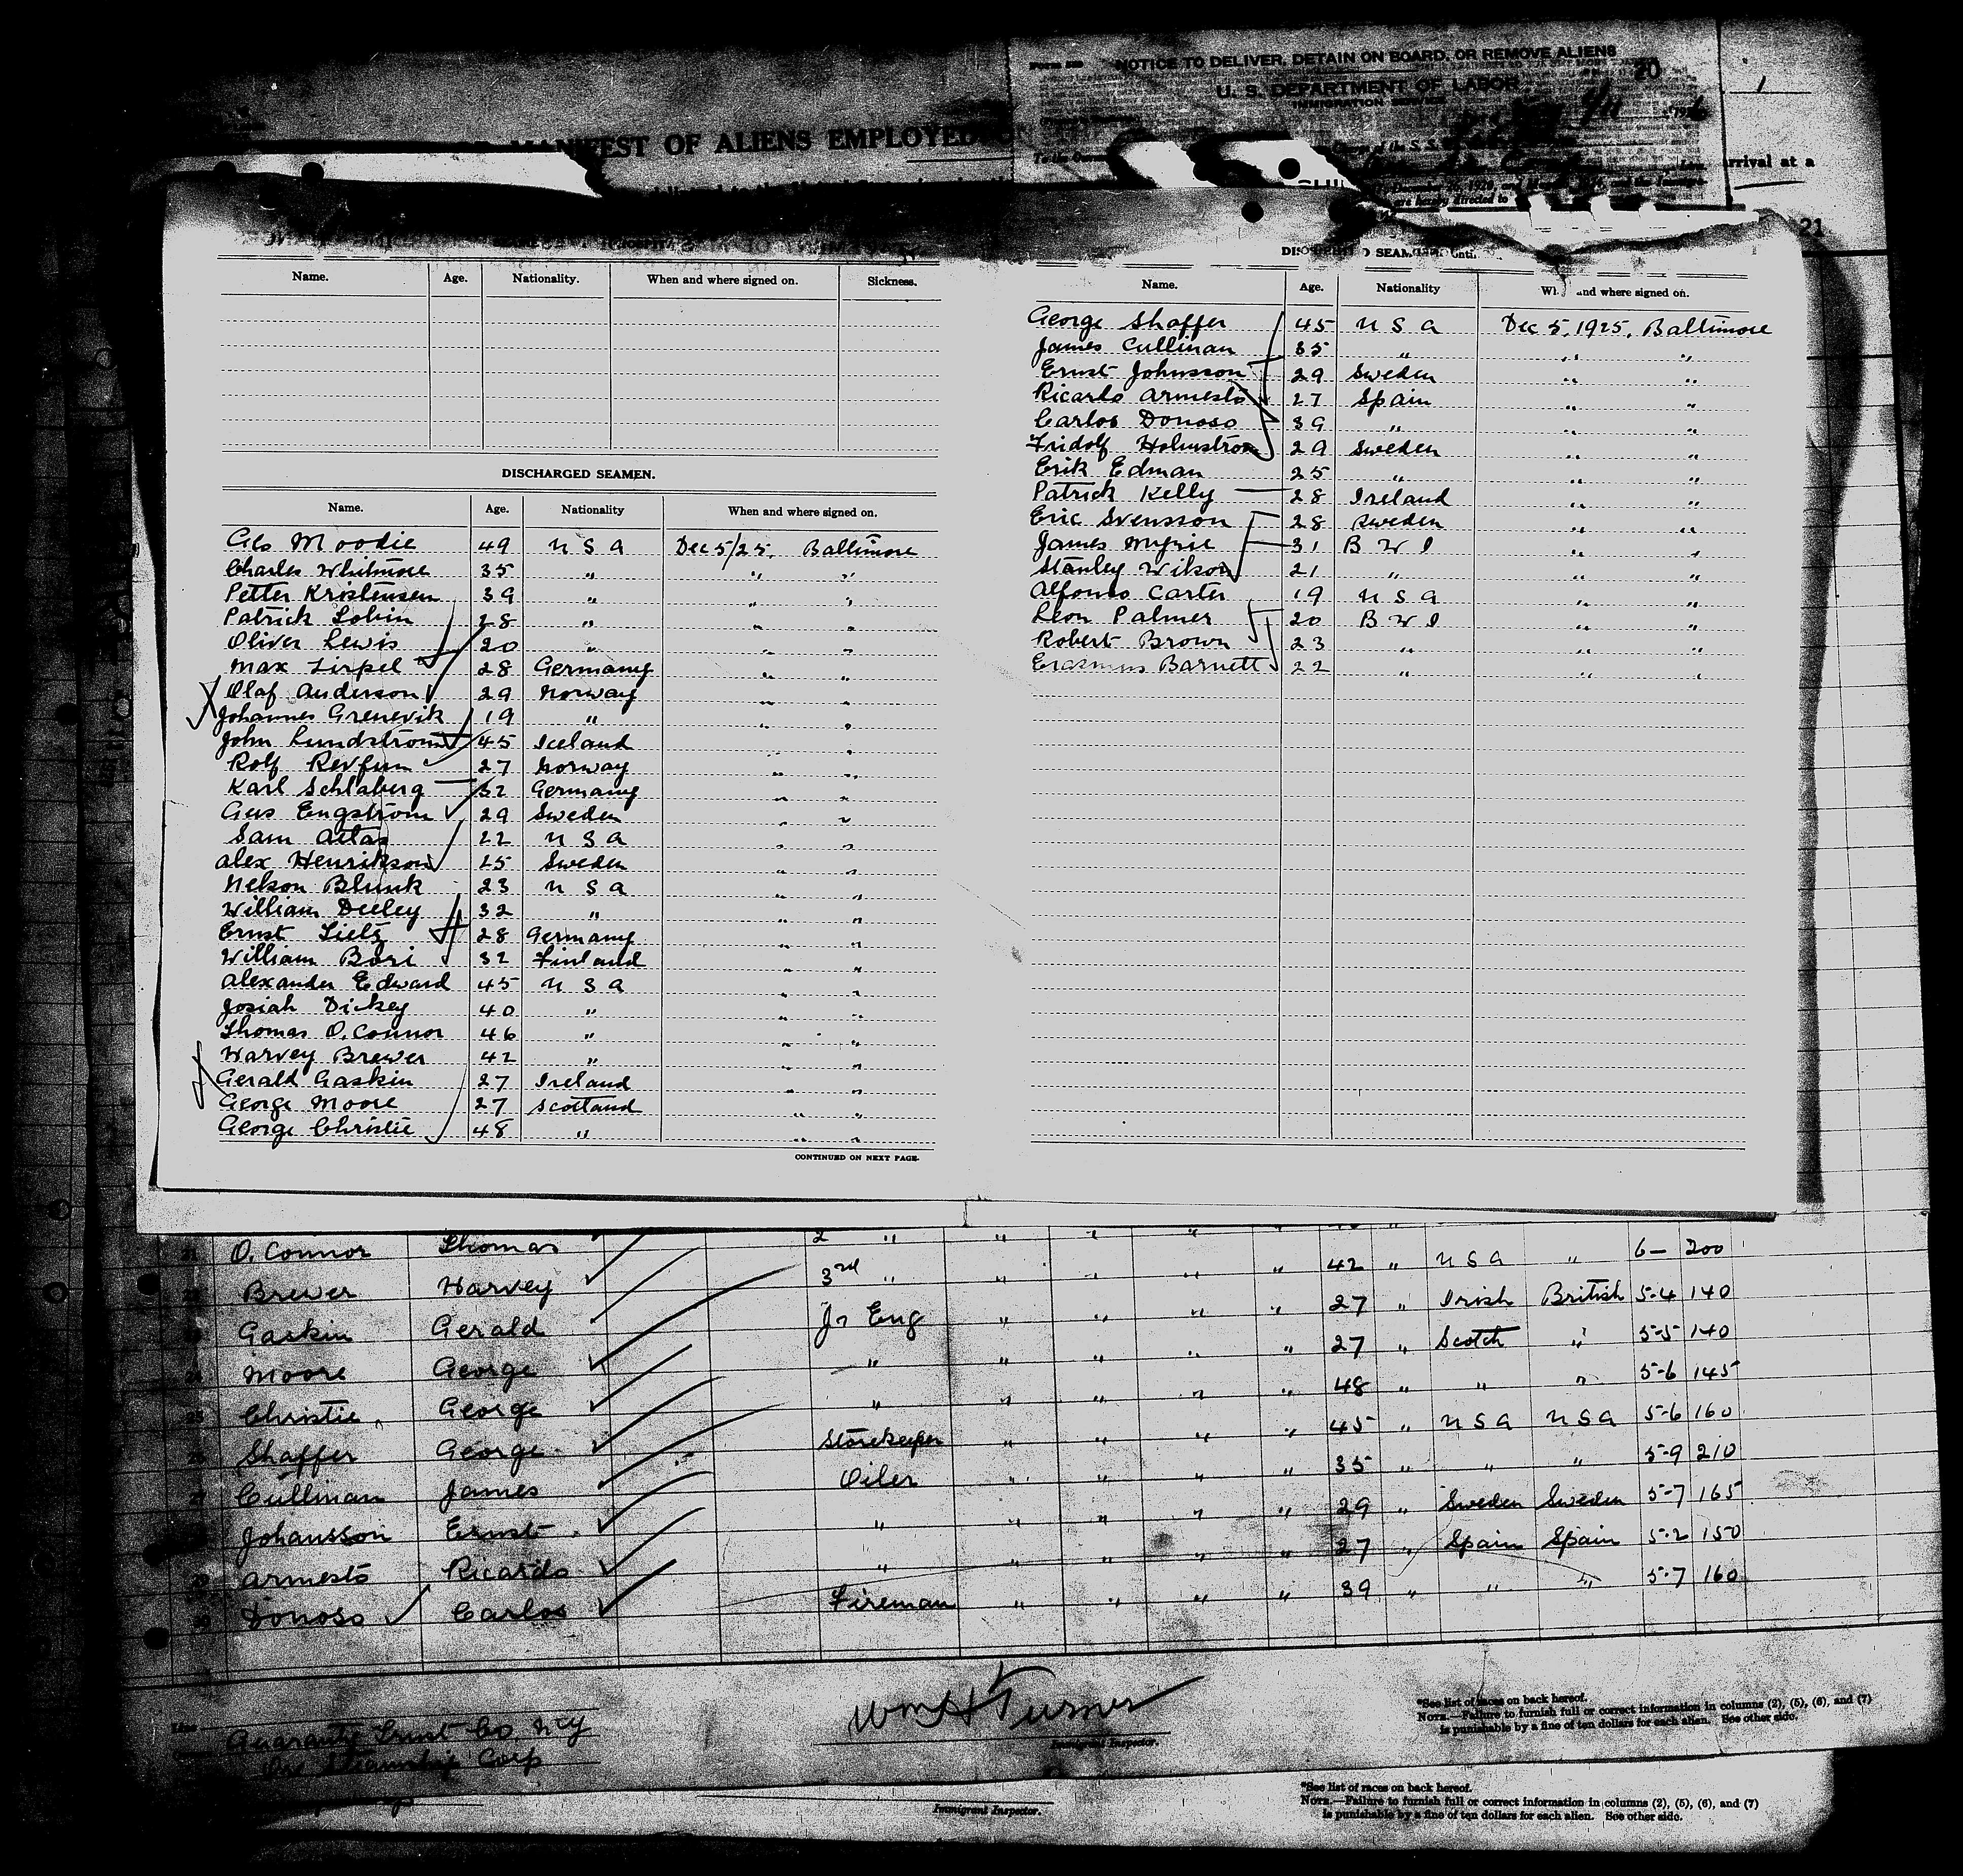 Form NOTICE TO DELIVER, DETAIN ON BOARD, OR REMOVE ALIENS
20
U. S. DEPARTMENT OF LABOR
IMMIGRATION SERVICE
MANIFEST OF ALIENS EMPLOYED
of the S. S.
arrival at a
are hereby directed to
21
Name. Age. Nationality. When and where signed on. Sickness.
DISCHARGED SEAMEN.
Name. Age. Nationality When and where signed on.
Geo Moodie 49 U S A Dec 5/25. Baltimore
Charles Whitmore 35 " " "
Petter Kristensen 39 " " "
Patrick Tobin 28 " " "
Oliver Lewis 20 " " "
Max Zirpel 28 Germany " "
Olaf Anderson 29 Norway " "
Johannes Grenevik 19 " " "
John Lundstrom 45 Iceland " "
Rolf 27 Norway " "
Karl Schlaberg 32 Germany " "
Gus Engstrom 29 Sweden " "
Sam 22 U S A " "
Alex Henrikson 25 Sweden " "
Nelson Blunk 23 U S A " "
William Deeley 32 " " "
Ernst Lietz 28 Germany " "
William Bori 32 Finland " "
Alexander Edward 45 U S A " "
Josiah Dickey 40 " " "
Thomas O. Connor 46 " " "
Harvey Brewer 42 " " "
Gerald Gaskin 27 Ireland " "
George Moore 27 Scotland " "
George Christie 48 " " "
CONTINUED ON NEXT PAGE.
Name. Age. Nationality and where signed on.
George Shaffer 45 U S A Dec 5. 1925. Baltimore
James Cullinan 35 " " "
Ernst Johnsson 29 Sweden " "
Ricardo Armesto 27 Spain " "
Carlos Donoso 39 " " "
Fridolf Holmstrom 29 Sweden " "
Erik Edman 25 " " "
Patrick Kelly 28 Ireland " "
Eric Svensson 28 Sweden " "
James Myrie 31 B W I " "
Stanley Wilson 21 " " "
Alfonso Carter 19 U S A " "
Leon Palmer 20 B W I " "
Robert Brown 23 " " "
Erasmus Barnett 22 " " "
21 O. Connor Thomas 2 " " " " "
Brewer Harvey 3rd " " " " " 42 " U S A " 6- 200
Gaskin Gerald Jr Eng " " " " 27 " Irish British 5-4 140
Moore George " " " " " 27 " Scotch " 5-5 140
25 Christie George " " " " " 48 " " " 5-6 145
Shaffer George Storekeeper " " " " 45 " U S A U S A 5-6 160
27 Cullinan James Oiler " " " " 35 " " " 5-9 210
Johansson Ernst " " " " " 29 " Sweden Sweden 5-7 165
Armesto Ricardo " " " " " 27 " Spain Spain 5-2 150
30 Donoso Carlos Fireman " " " " 39 " " " 5-7 160
Wm H Turner
Immigrant Inspector.
Line
Guaranty Trust Co. N Y
Steamship Corp
*See list of races on back hereof.
NOTE.—Failure to furnish full or correct information in columns (2), (5), (6), and (7)
is punishable by a fine of ten dollars for each alien. See other side.
Immigrant Inspector.
*See list of races on back hereof.
NOTE.—Failure to furnish full or correct information in columns (2), (5), (6), and (7)
is punishable by a fine of ten dollars for each alien. See other side.